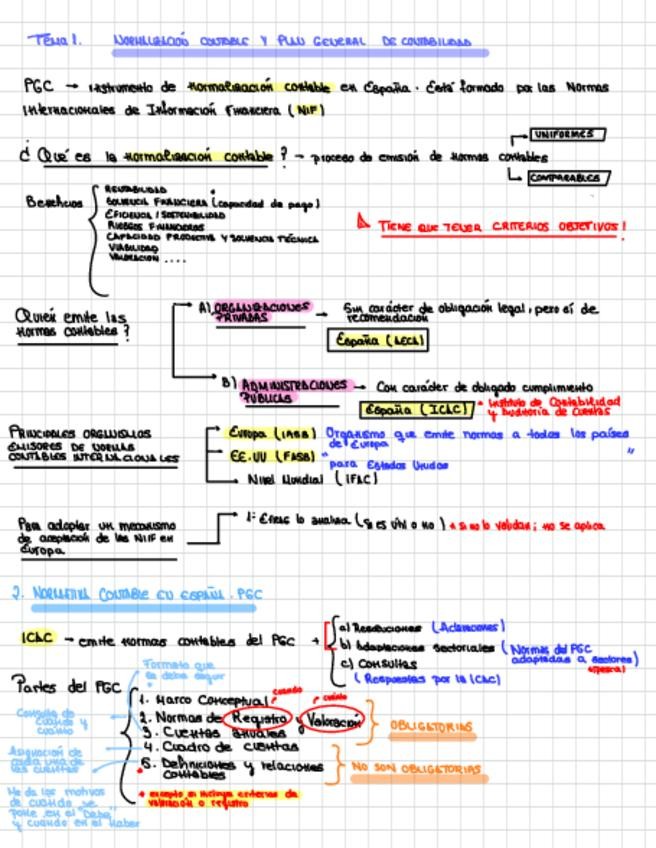 TEMA 1. NORMALIZACIÓN CONTABLE Y PLAN GENERAL DE CONTABILIDAD
PGC → instrumento de normalización contable en España. Está formado por las Normas
Internacionales de Información Financiera (NIF)
¿Qué es la normalización contable? → proceso de emisión de normas contables
UNIFORMES
COMPARABLES
Beneficios
RENTABILIDAD
SOLVENCIA FINANCIERA (capacidad de pago)
EFICIENCIA / SOSTENIBILIDAD
RIESGOS FINANCIEROS
CAPACIDAD PRODUCTIVA Y SOLVENCIA TÉCNICA
VIABILIDAD
VALORACIÓN ....
TIENE QUE TENER CRITERIOS OBJETIVOS!
Quién emite las
normas contables?
A) ORGANIZACIONES
PRIVADAS
→ Sin carácter de obligación legal, pero sí de
recomendación
España (AECA)
B) ADMINISTRACIONES
PÚBLICAS
→ Con carácter de obligado cumplimiento
España (ICAC)
* Instituto de Contabilidad
y Auditoría de Cuentas
PRINCIPALES ORGANISMOS
EMISORES DE NORMAS
CONTABLES INTERNACIONALES
Europa (IASB) Organismo que emite normas a todos los países
de Europa
EE.UU (FASB) " "
para Estados Unidos
Nivel Mundial (IFAC)
Para adoptar un mecanismo
de aceptación de las NIIF en
Europa
1: EFRAG lo analiza (si es útil o no) * si no lo validan; no se aplica
2. NORMATIVA CONTABLE EN ESPAÑA. PGC
ICAC → emite normas contables del PGC +
a) Resoluciones (Aclaraciones)
b) Adaptaciones sectoriales (Normas del PGC
adaptadas a sectores)
c) Consultas
(Respuestas por la ICAC)
Formato que
se debe seguir
Partes del PGC
1. Marco Conceptual
cuando
cuánto
2. Normas de Registro y Valoración
3. Cuentas anuales
4. Cuadro de cuentas
5. Definiciones y relaciones
contables
OBLIGATORIAS
NO SON OBLIGATORIAS
* excepto si incluya criterios de
valoración o registro
Consulta de
cuando y
cuánto
Asignación de
cada una de
las cuentas
Me da los motivos
de cuándo se
pone en el "Debe"
y cuando en el Haber